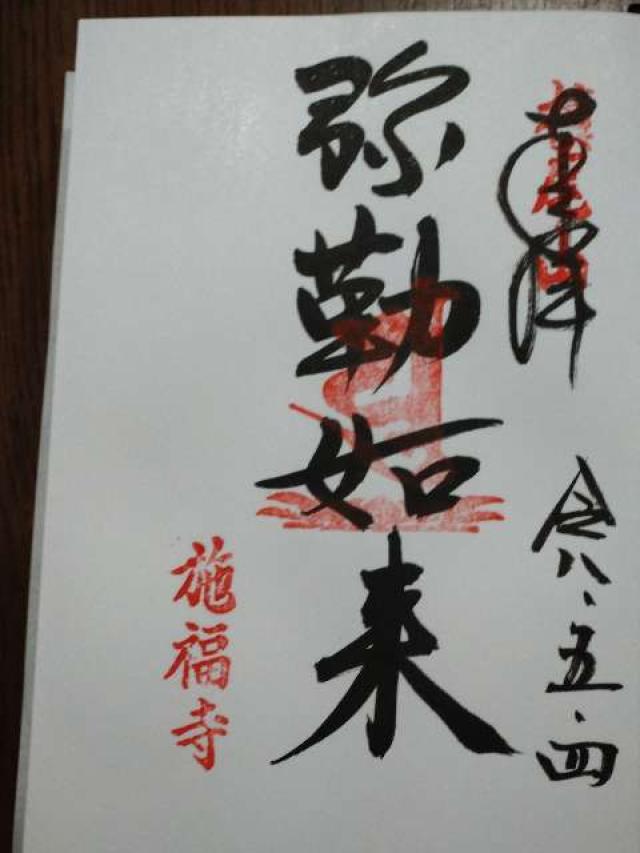 奉拝
令八、五、四
弥勒如来
施福寺